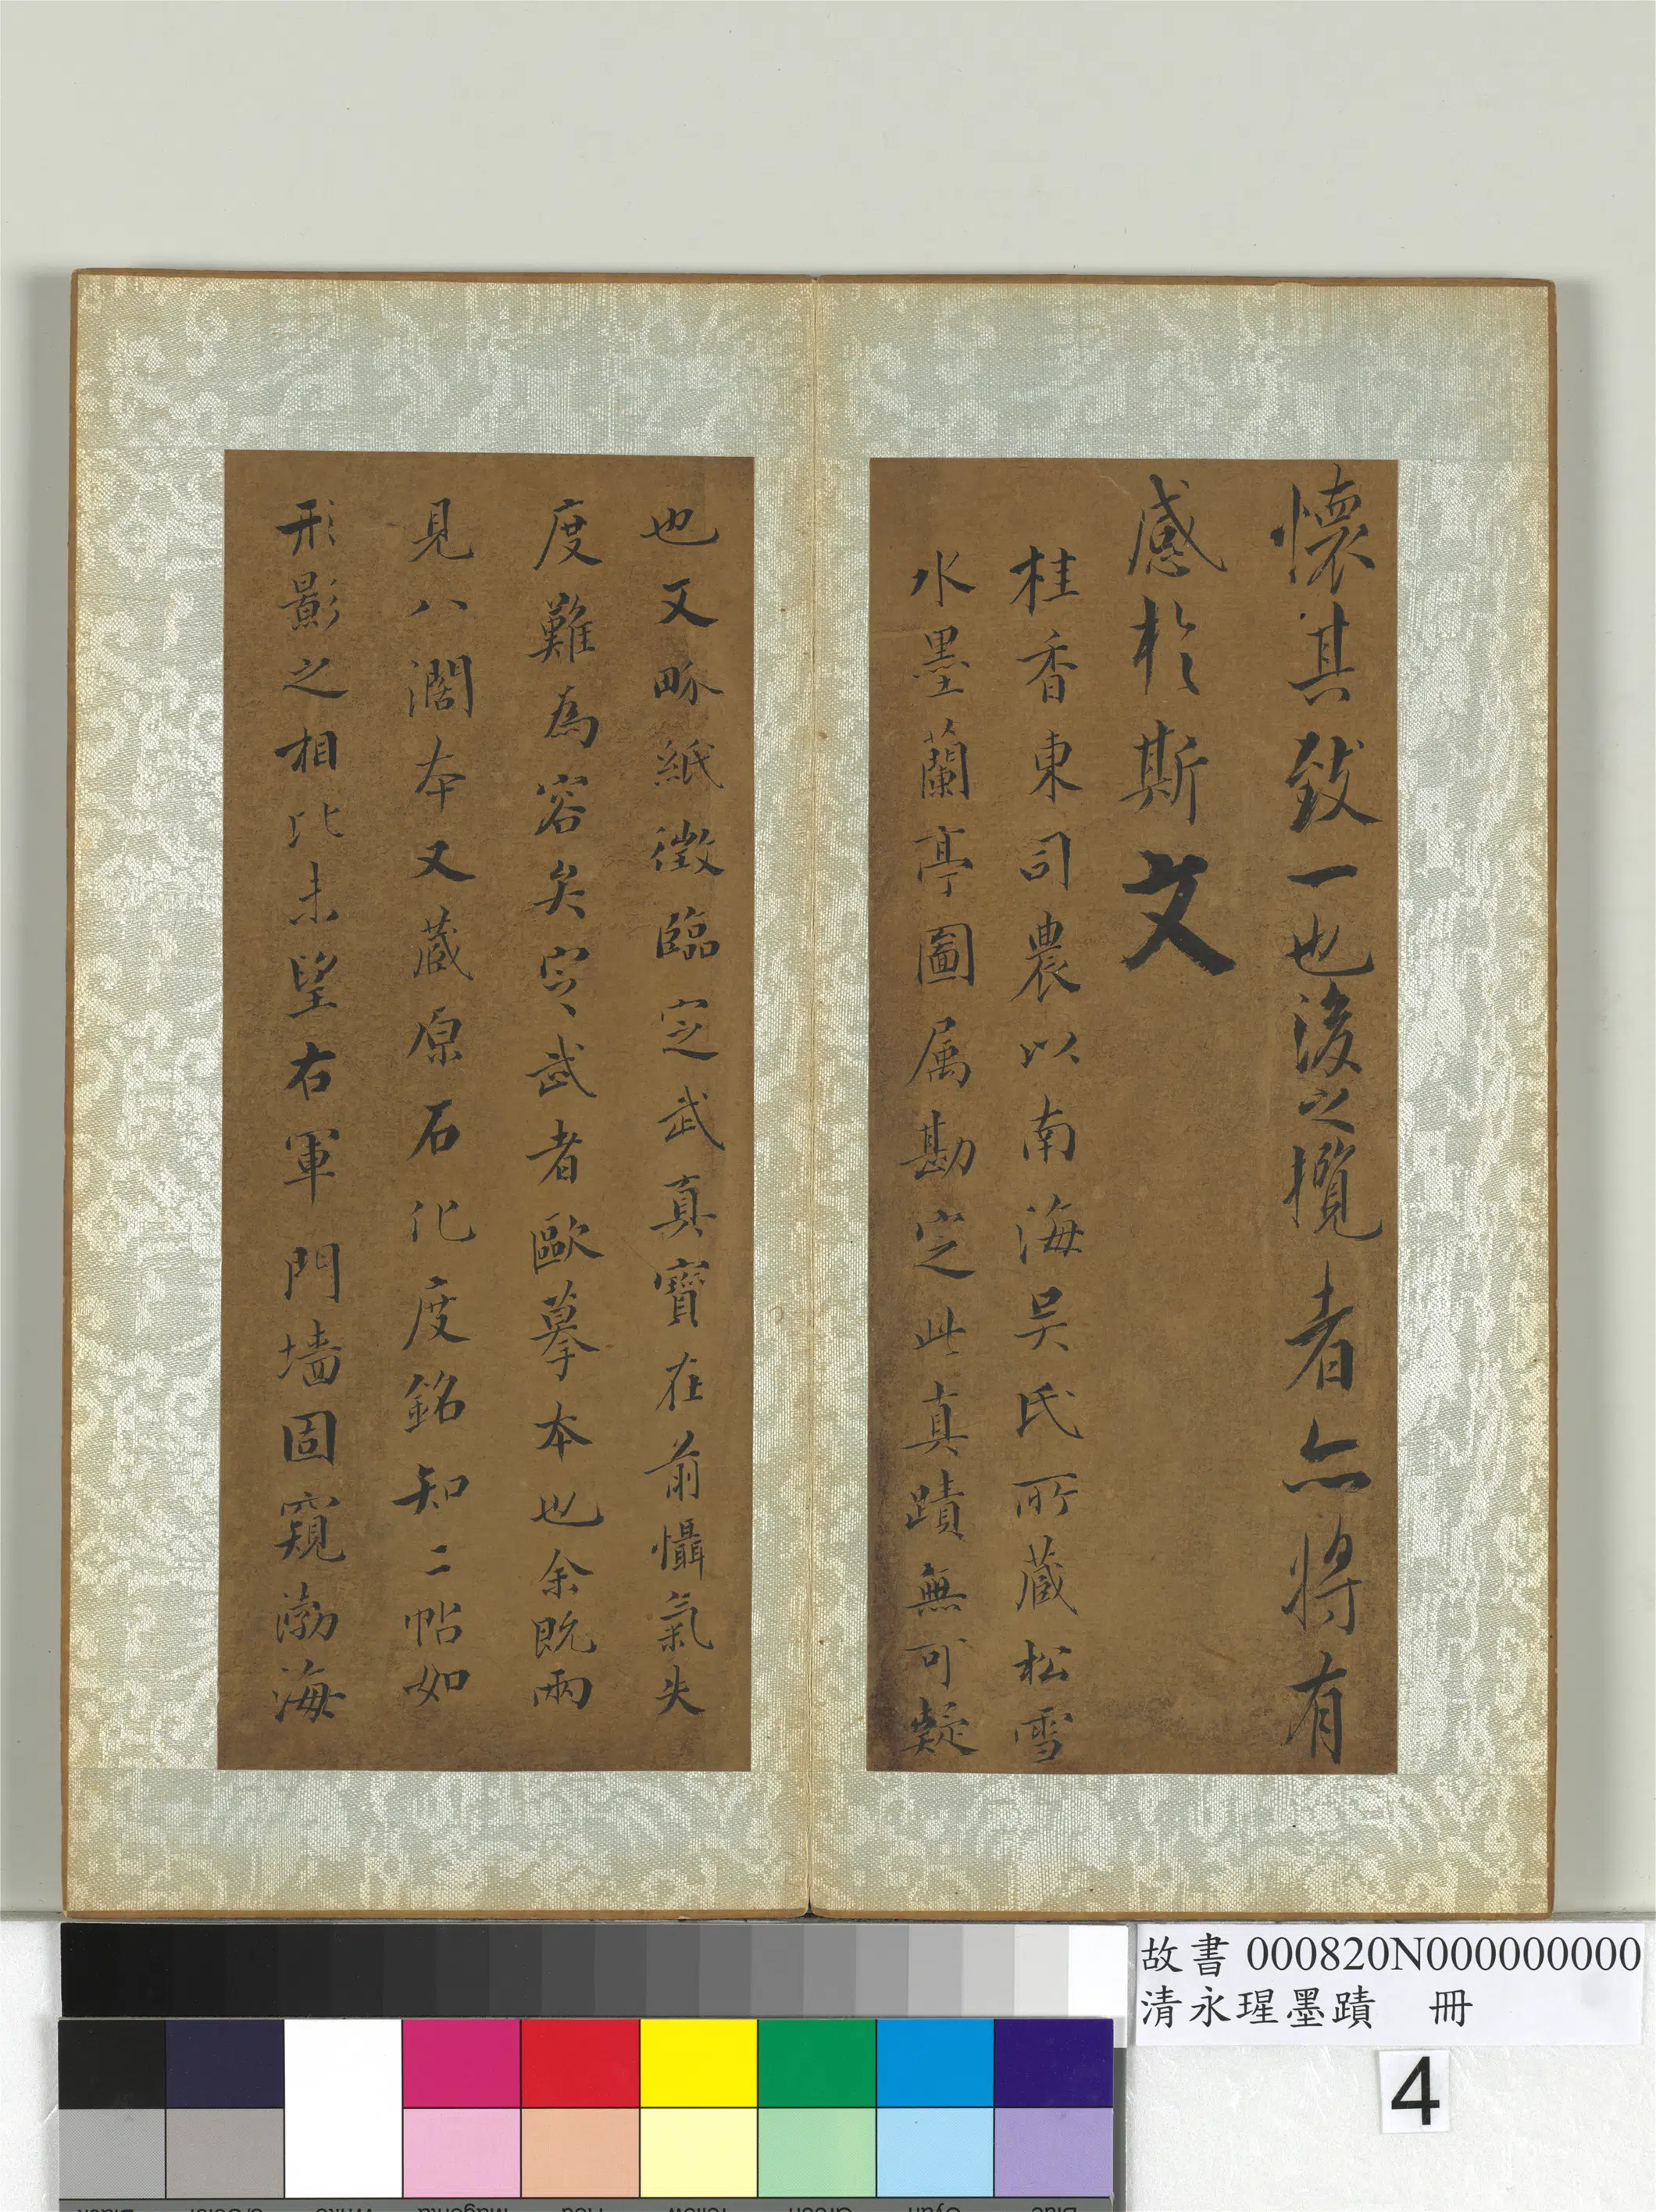 懷其致一也後之攬者亦將有
感於斯文
桂香東司農以南海吳氏所藏松雪
水墨蘭亭圖属勘定此真蹟無可疑
也又畞紙徵臨定武真寶在前懾氣失
度難為容矣定武者歐摹本也余既兩
見八濶本又藏原石化度銘知二帖如
形影之相比未望右軍門墻固窺渤海
故書 000820N000000000
清永瑆墨蹟 冊
4